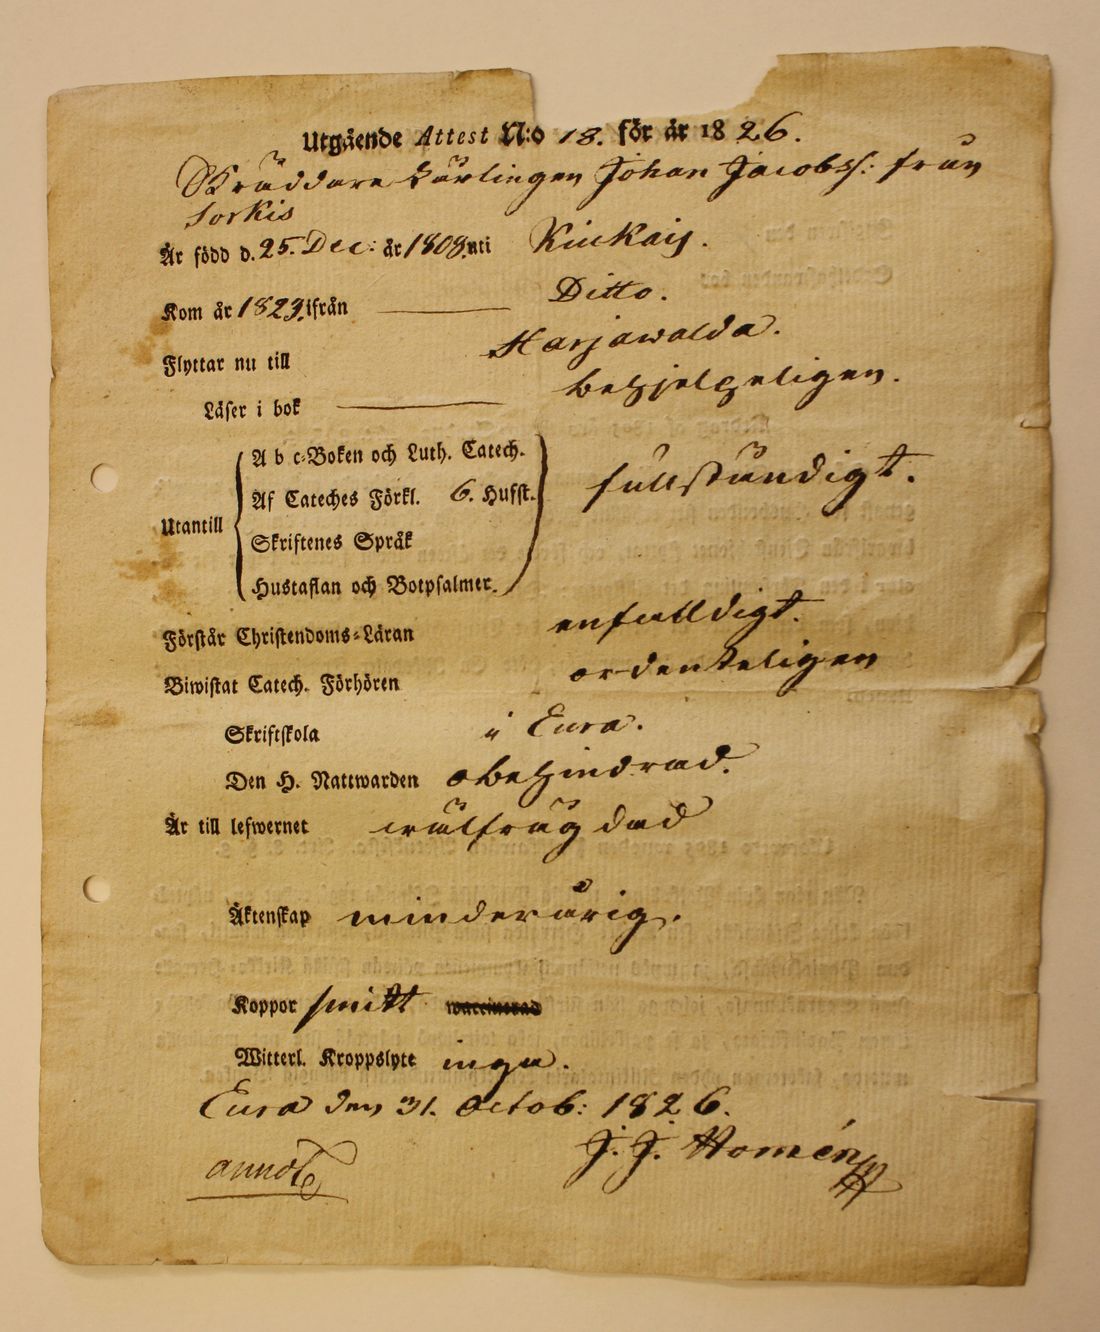 Utgående Attest N:o 18. för år 1826.
Skräddare Lärlingen Johan Jacobss: från
Sorkis
Är född d. 25. Dec: år 1808. uti Kiukais.
Kom år 1823. ifrån Ditto.
Flyttar nu till Harjawalda.
Läser i bok behjelpeligen.
Utantill
A b c-Boken och Luth. Catech.
Af Cateches Förkl. 6. Hufst.
Skriftenes Språk
Hustaflan och Botpsalmer.
fullständigt.
Förstår Christendoms-Läran enfalldigt.
Biwistat Catech. Förhören ordenteligen
Skriftskola i Eura.
Den H. Nattwarden obehindrad.
Är till lefwernet wälfrägdad
Äktenskap minderårig.
Koppor smitt waccinerad
Witterl. Kroppslyte inga.
Eura den 31. Octob: 1826.
J. J. Homén
annot